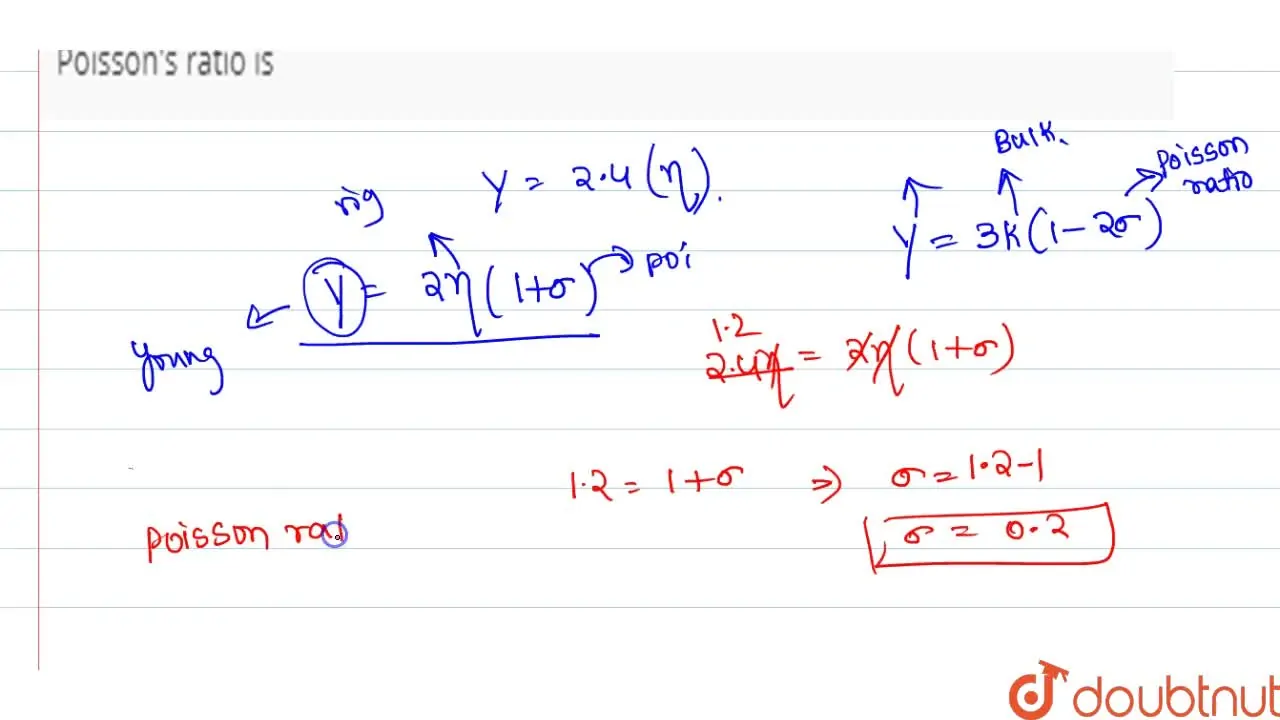 Poisson's ratio is
Bulk.
Poisson
ratio
rig
Y = 2.4 (η).
Y = 3K(1-2σ)
Y = 2η(1+σ)
poi
young
1.2
2.4η = 2η(1+σ)
1.2 = 1+σ ⇒ σ = 1.2-1
σ = 0.2
poisson rat
doubtnut